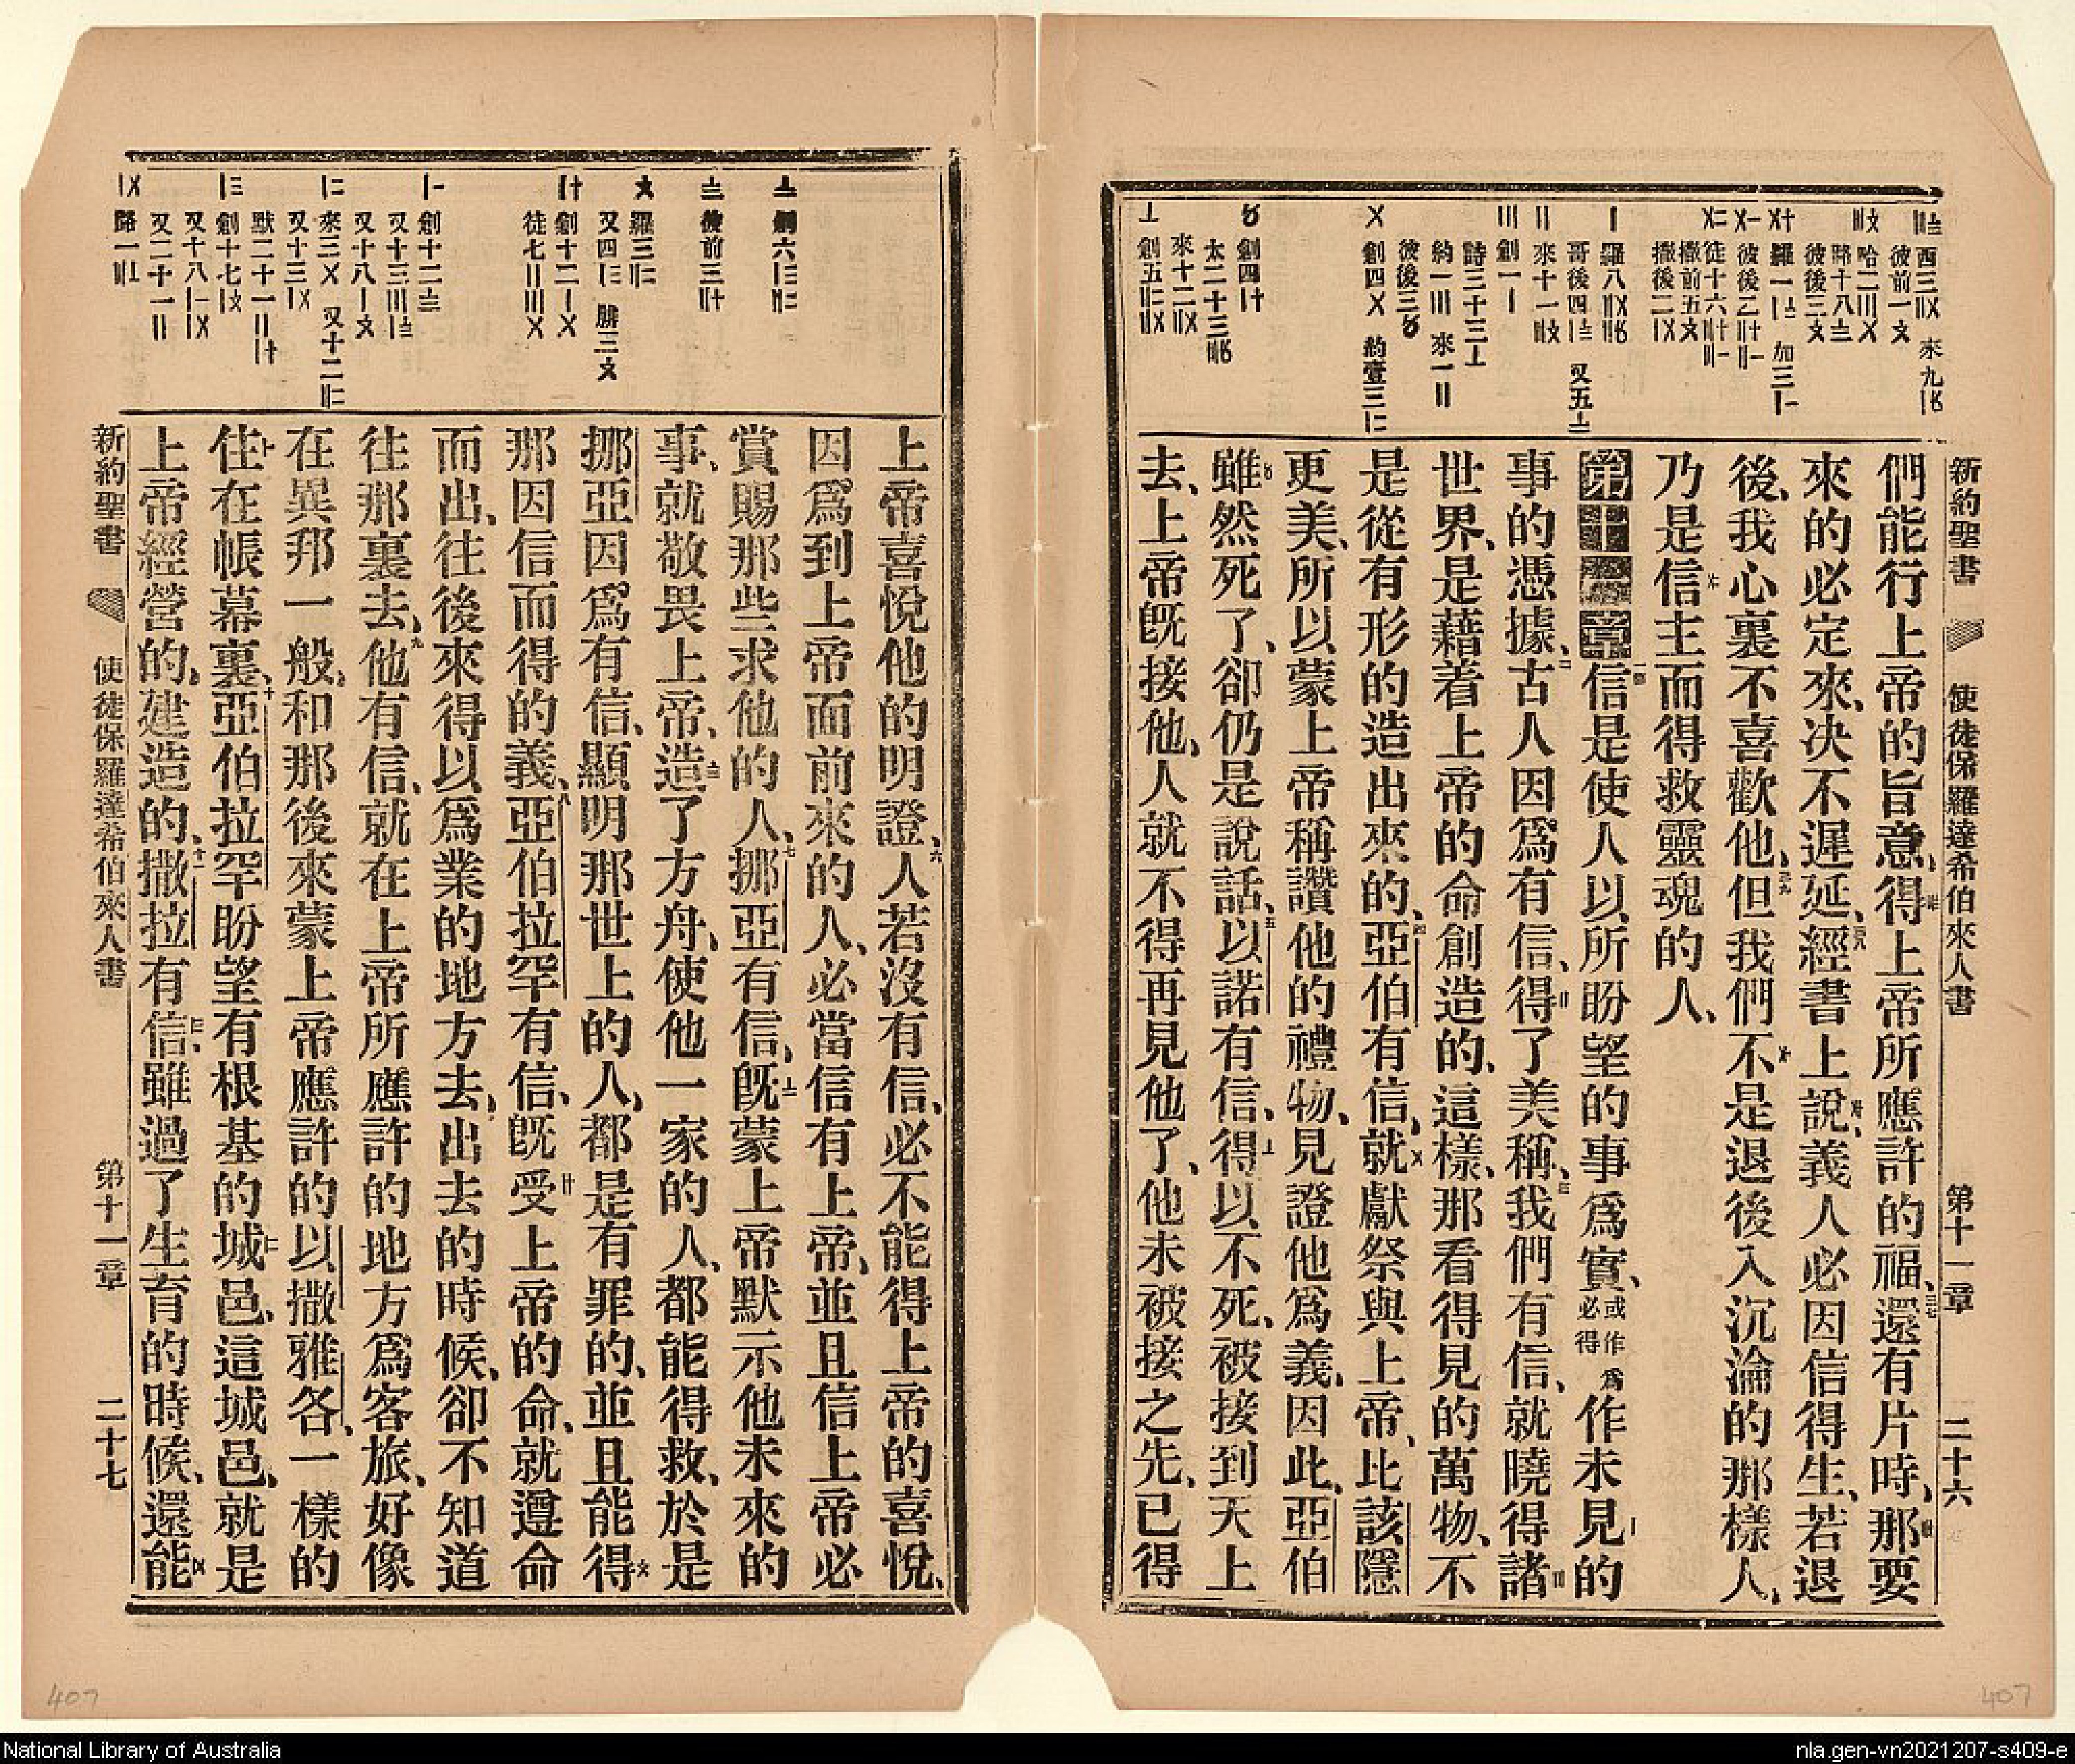 新約聖書 使徒保羅達希伯來人書 第十一章 二十六
們能行上帝的旨意、得上帝所應許的福、還有片時、那要
來的必定來、决不遲延、經書上說、義人必因信得生、若退
後、我心裏不喜歡他、但我們不是退後入沉淪的那樣人、
乃是信主而得救靈魂的人、
第十一章信是使人以所盼望的事爲實、或作爲必得作未見的
事的憑據、古人因爲有信、得了美稱、我們有信、就曉得諸
世界、是藉着上帝的命創造的、這樣、那看得見的萬物、不
是從有形的造出來的、亞伯有信、就獻祭與上帝、比該隱
更美、所以蒙上帝稱讚他的禮物、見證他爲義、因此、亞伯
雖然死了、卻仍是說話、以諾有信、得以不死、被接到天上
去、上帝旣接他、人就不得再見他了、他未被接之先、已得
上帝喜悅他的明證、人若沒有信、必不能得上帝的喜悅、
因爲到上帝面前來的人、必當信有上帝、並且信上帝必
賞賜那些求他的人、挪亞有信、旣蒙上帝默示他未來的
事、就敬畏上帝、造了方舟、使他一家的人、都能得救、於是
挪亞因爲有信、顯明那世上的人、都是有罪的、並且能得
那因信而得的義、亞伯拉罕有信、旣受上帝的命、就遵命
而出、往後來得以爲業的地方去、出去的時候、卻不知道
往那裏去、他有信、就在上帝所應許的地方爲客旅、好像
在異邦一般、和那後來蒙上帝應許的以撒雅各、一樣的
住在帳幕裏、亞伯拉罕盼望有根基的城邑、這城邑、就是
上帝經營的、建造的、撒拉有信、雖過了生育的時候、還能
新約聖書 使徒保羅達希伯來人書 第十一章 二十七
407
407
National Library of Australia
nla.gen-vn2021207-s409-e